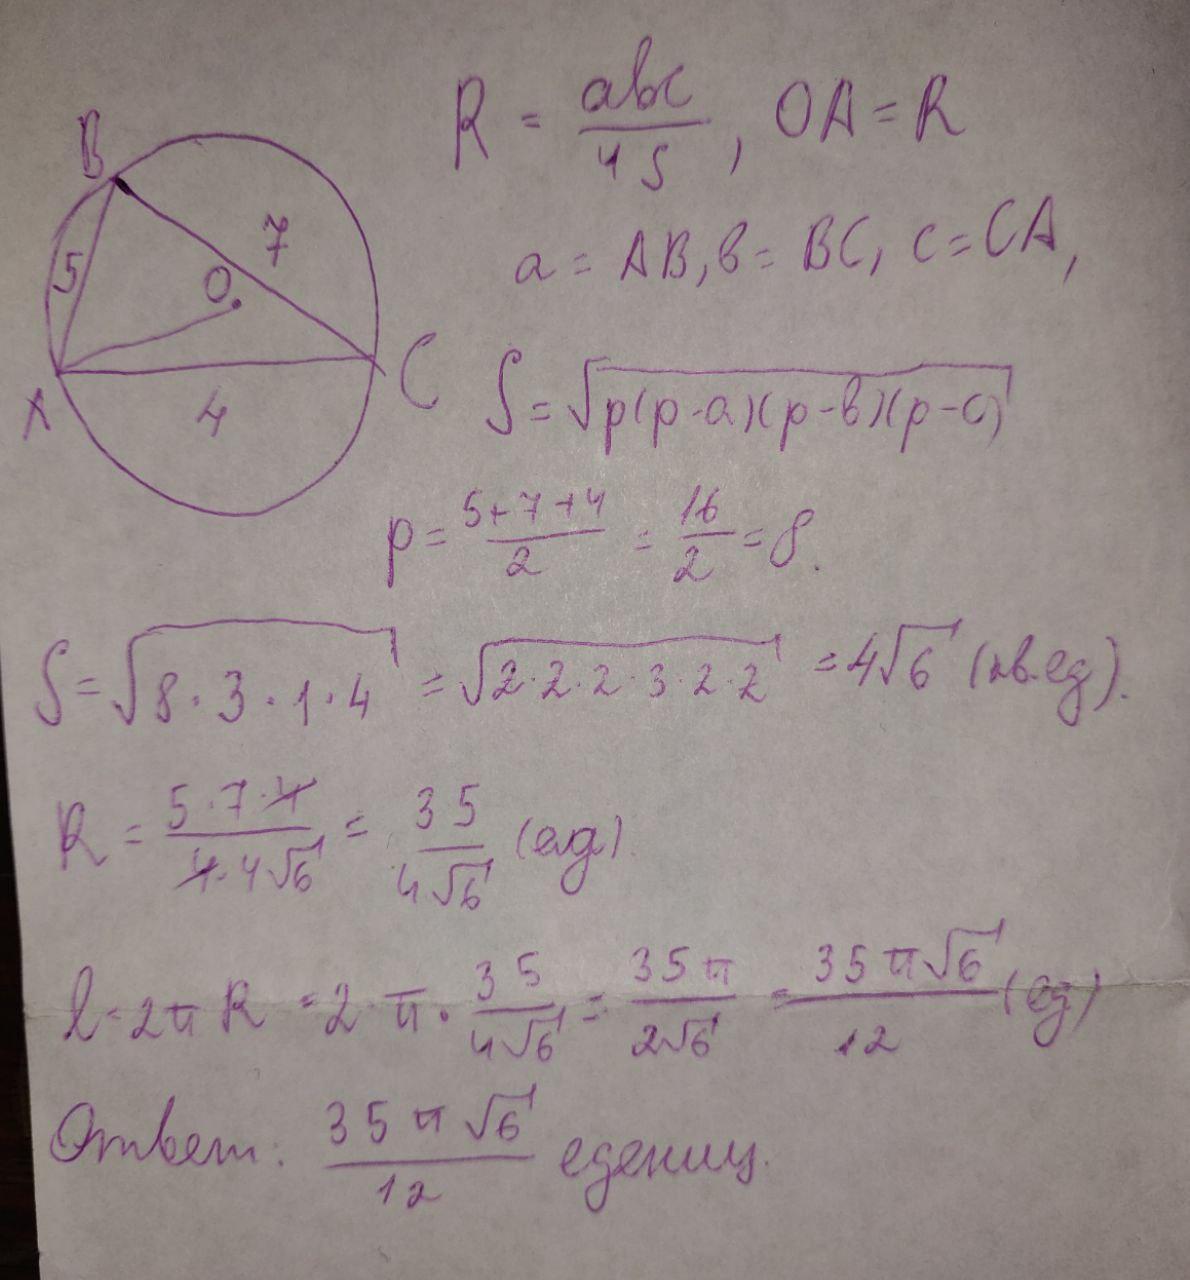 R = abc/4S, OA = R
B
7
5
O
A
4
C
a = AB, в = BC, c = CA,
S = √p(p-a)(p-в)(p-c)
p = 5+7+4/2 = 16/2 = 8.
S = √8·3·1·4 = √2·2·2·3·2·2 = 4√6 (кв.ед).
R = 5·7·4/4·4√6 = 35/4√6 (ед).
l = 2πR = 2·π·35/4√6 = 35π/2√6 = 35π√6/12 (ед)
Ответ: 35π√6/12 едениц.